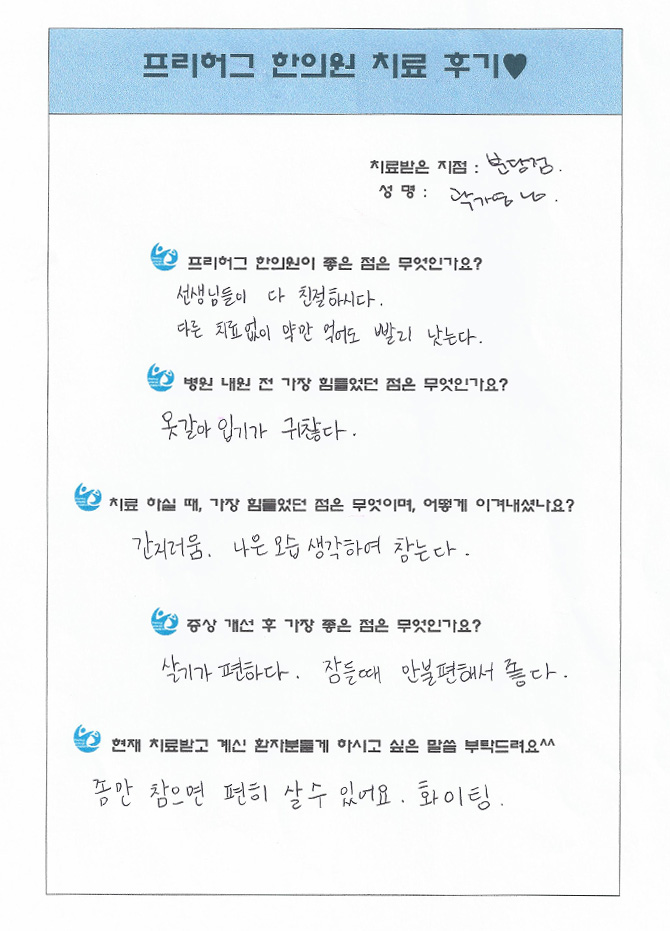 프리허그 한의원 치료 후기♥
치료받은 지점 : 분당점.
성 명 : 곽가영 님.
프리허그 한의원이 좋은 점은 무엇인가요?
선생님들이 다 친절하시다.
다른 치료없이 약만 먹어도 빨리 낫는다.
병원 내원 전 가장 힘들었던 점은 무엇인가요?
옷갈아 입기가 귀찮다.
치료 하실 때, 가장 힘들었던 점은 무엇이며, 어떻게 이겨내셨나요?
간지러움. 나은 모습 생각하여 참는다.
증상 개선 후 가장 좋은 점은 무엇인가요?
살기가 편하다. 잠들때 안불편해서 좋다.
현재 치료받고 계신 환자분들게 하시고 싶은 말씀 부탁드려요^^
좀만 참으면 편히 살 수 있어요. 화이팅.